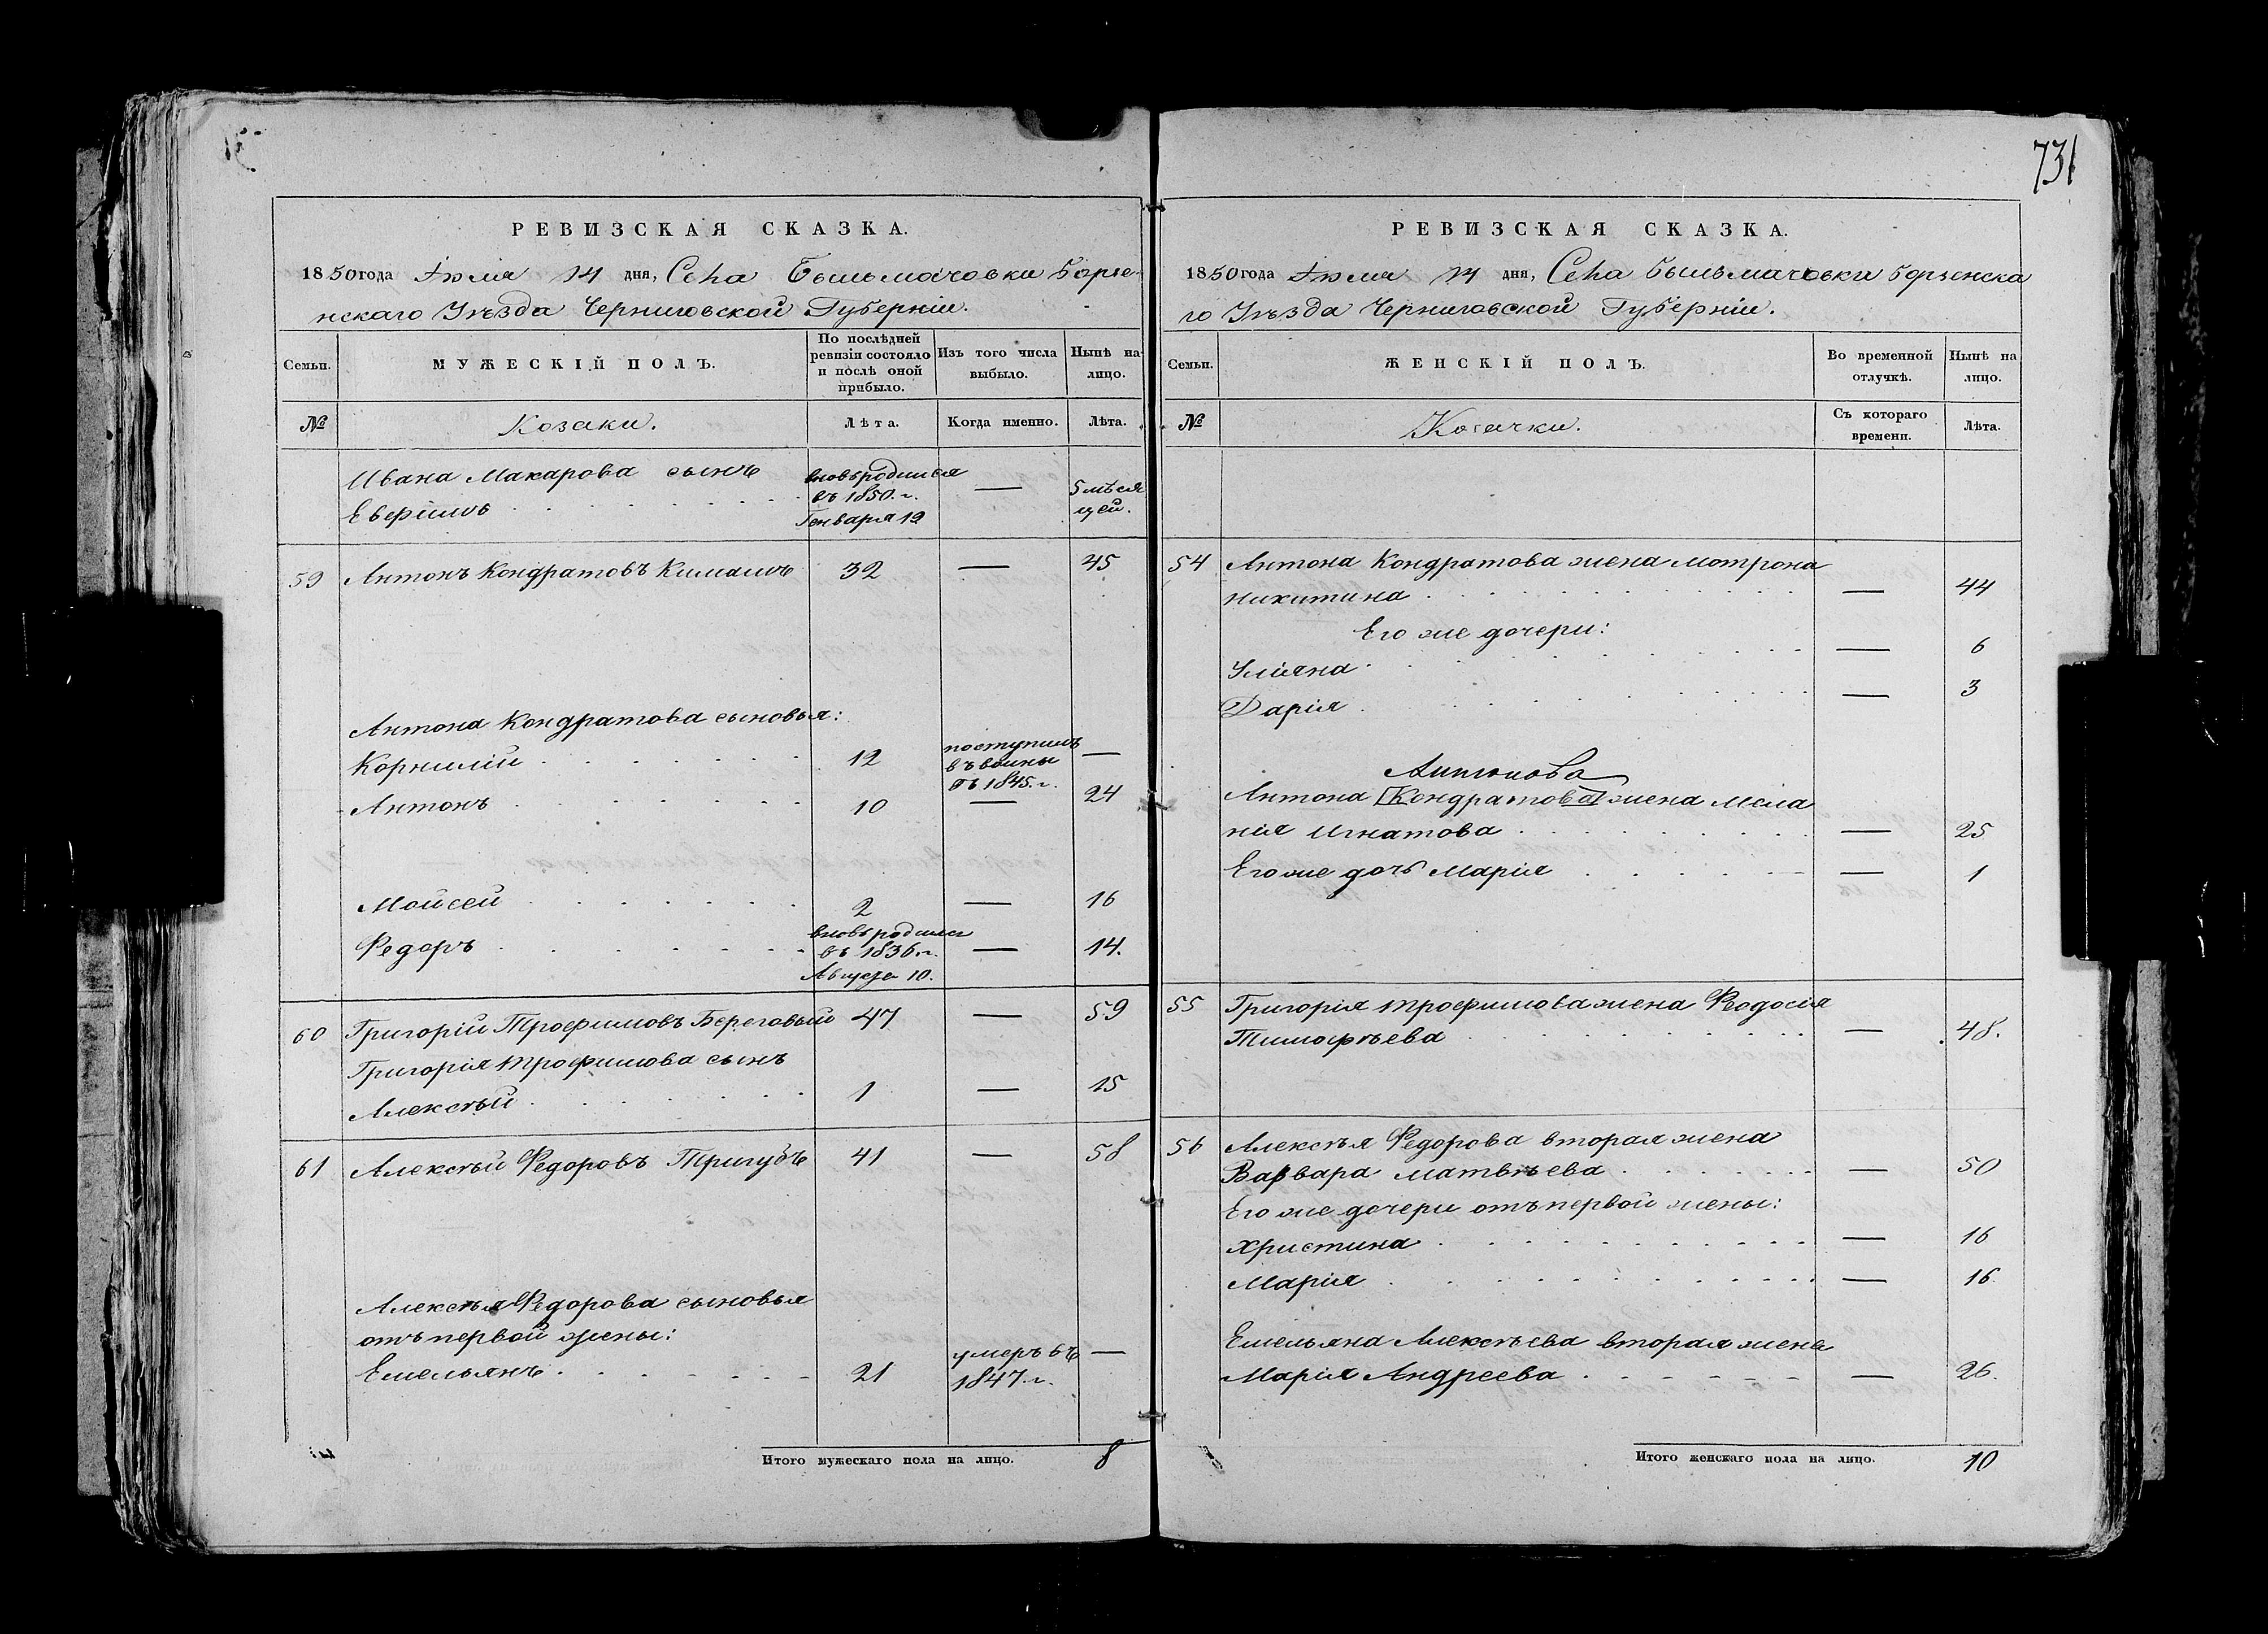 731
РЕВИЗСКАЯ СКАЗКА.
1850 года Іюля 14 дня, Села Бѣльмачовки Борзе-
нскаго Уѣзда Черниговской Губерніи.
Семьи.
МУЖЕСКІЙ ПОЛЪ.
По послѣдней
ревизіи состояло
и послѣ оной
прибыло.
Изъ того числа
выбыло.
Нынѣ на
лицо.
№
Козаки.
Лѣта.
Когда именно.
Лѣта.
Ивана Макарова сынъ
Евфимъ
вновьродился
въ 1850. г.
Генваря 19
—
5 мѣся
цей.
59 Антонъ Кондратовъ 32 — 45
Антона Кондратова сыновья:
Корнилій 12 поступилъ —
въ воины
въ 1845. г.
Антонъ 10 — 24
Мойсей 2 — 16
Федоръ вновьродился
въ 1836. г. — 14.
Августа 10.
60 Григорій Трофимовъ Береговый 47 — 59
Григорія Трофимова сынъ
Алексѣй 1 — 15
61 Алексѣй Федоровъ Тригубъ 41 — 58
Алексѣя Федорова сыновья
отъ первой жены:
Емельянъ 21 умеръ въ —
1847. г.
Итого мужескаго пола на лицо. 8
РЕВИЗСКАЯ СКАЗКА.
1850 года Іюля 14 дня, Села Бѣльмачовки Борзенска
го Уѣзда Черниговской Губерніи.
Семьи.
ЖЕНСКІЙ ПОЛЪ.
Во временной
отлучкѣ.
Нынѣ на
лицо.
№
Козачки.
Съ котораго
времени.
Лѣта.
54 Антона Кондратова жена Мотрона
Никитина — 44
Его же дочери:
Уліяна — 6
Дарія — 3
Антонова
Антона [Кондратова] жена Мела
нія Игнатова — 25
Его же дочь Марія — 1
55 Григорія Трофимова жена Феодосія
Тимофѣева — 48.
56 Алексѣя Федорова вторая жена
Варвара Матвѣева — 50
Его же дочери отъ первой жены:
Христина — 16
Марія — 16.
Емельяна Алексѣева вторая жена
Марія Андреева — 26.
Итого женскаго пола на лицо. 10